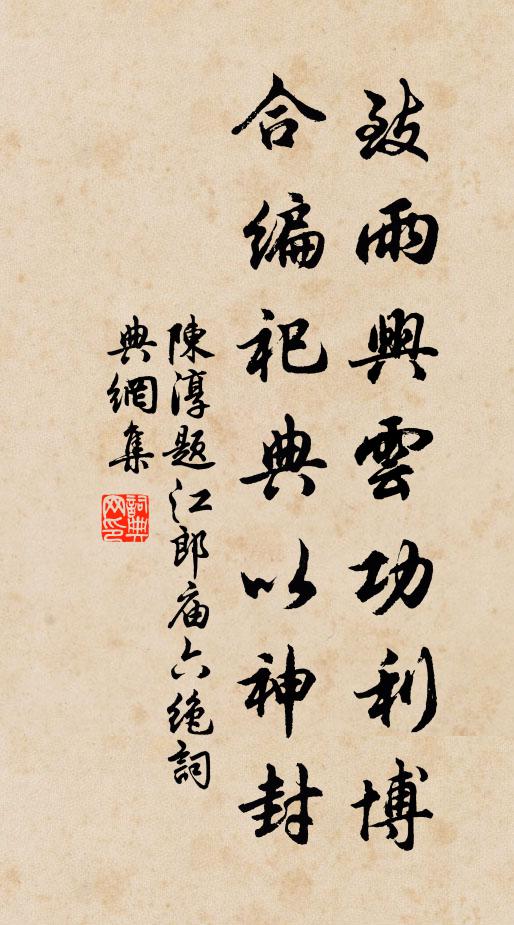 致雨興雲功利博
合編祀典以神封
陳淳題江郎庙六絶詞
典網集
詞典
网印